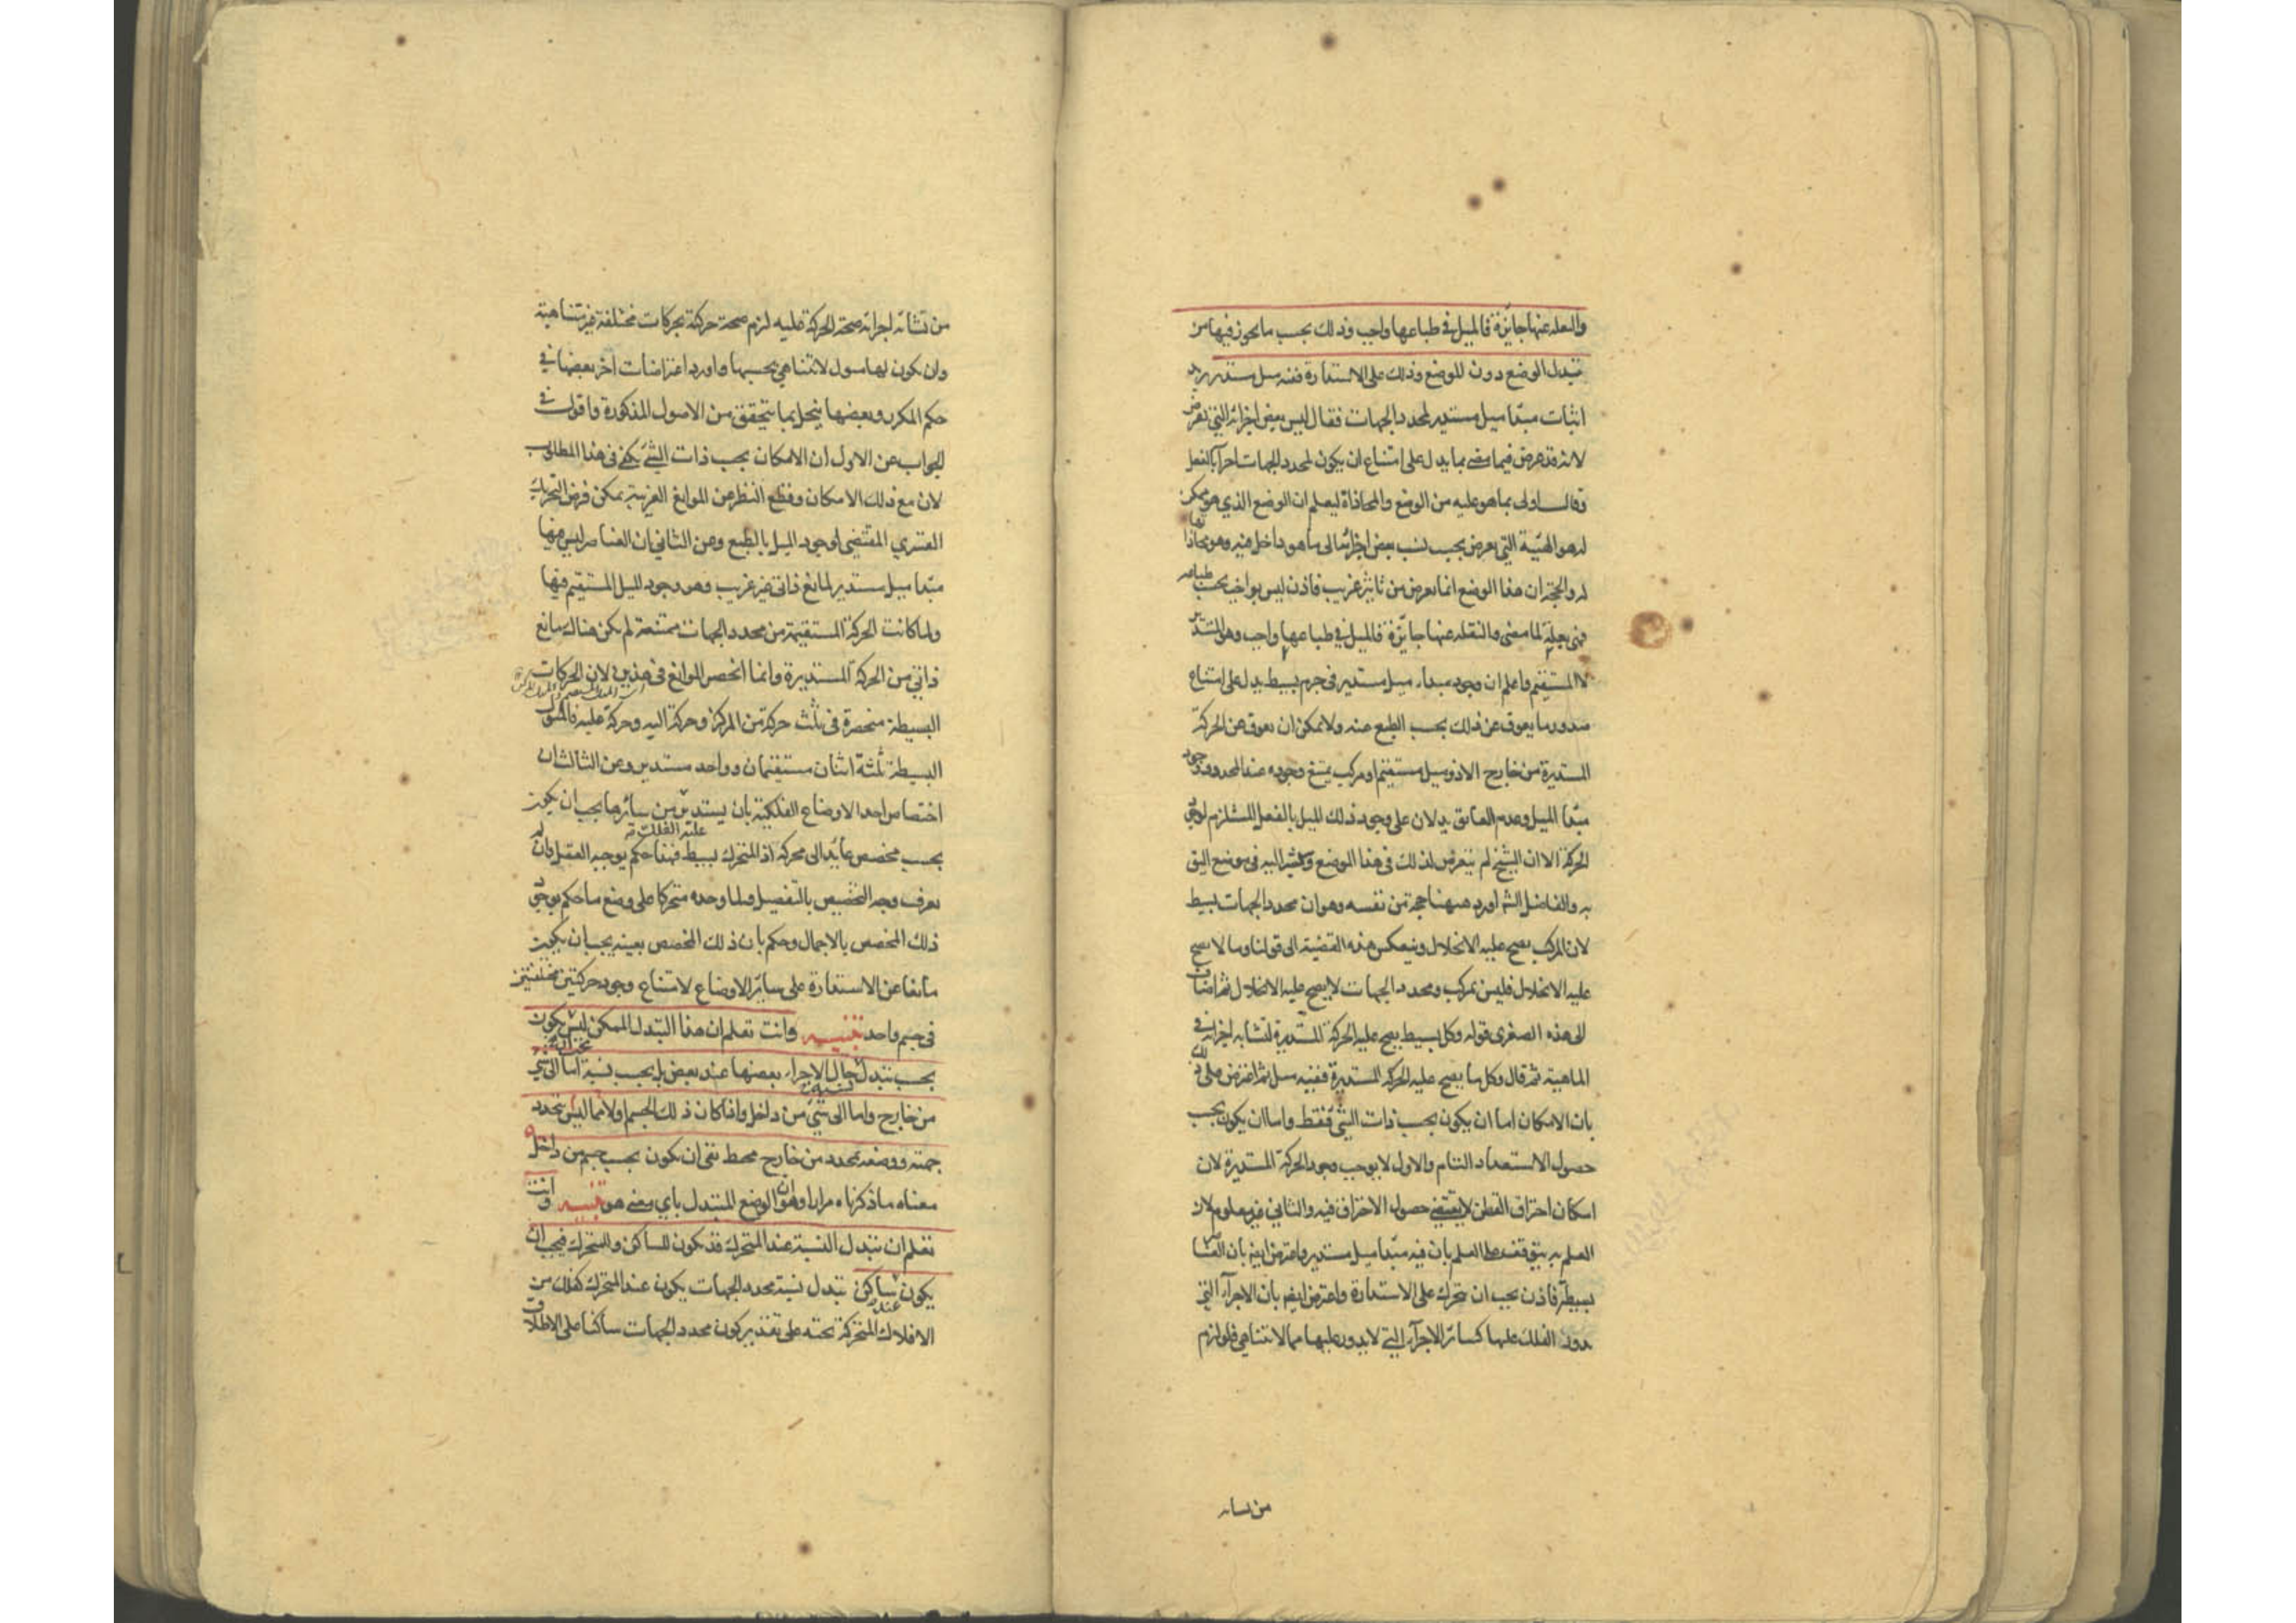 والنقله عنها جايزة فالميل في طباعها واجب وذلك بحسب ما يجوز فيها من
تبدل الوضع دون الموضع وذلك على الاستدارة ففيه ميل مستدير يريد
اثبات مبدأ ميل مستدير لمحدد الجهات فقال ليس بعض اجزائه التي تفرض
لانه قد عرض فيما مضى بما يدل على امتناع ان يكون لمحدد الجهات اجزآ بالفعل
وقال اولى بما هو عليه من الوضع والمحاذاة ليعلم ان الوضع الذي هو ممكن
له هو الهيئة التي تعرض بحسب نسب بعض اجزائه الى ما هو داخل فيه وهو محاذا
له والحجة ان هذا الوضع انما يعرض من تاثير غريب فاذن ليس بواجب بحسب طباعه
فهي بعلة لما مضى والنقله عنها جايزة فالميل في طباعها واجب وهو المستدير
لا المستقيم واعلم ان وجود مبداء ميل مستدير في جرم بسيط يدل على امتناع
صدور ما يعوق عن ذلك بحسب الطبع عنه ولا يمكن ان يعوق عن الحركة
المستديرة من خارج الا ذو ميل مستقيم او مركب يمتنع وجوده عند المحدد ووجود
مبدأ الميل وعدم العائق يدلان على وجود ذلك الميل بالفعل المستلزم لوجود
الحركة الا ان الشيخ لم يتعرض لذلك في هذا الموضع وسيشير اليه في موضع اليق
به والفاضل الشارح اورد ههنا حجة من نفسه وهو ان محدد الجهات بسيط
لان المركب يصح عليه الانحلال وينعكس هذه القضية الى قولنا وما لا يصح
عليه الانحلال فليس بمركب ومحدد الجهات لا يصح عليه الانحلال ثم اضاف
الى هذه الصغرى قوله وكل بسيط يصح عليه الحركة المستديرة لتشابه اجزائه في
الماهية ثم قال وكل ما يصح عليه الحركة المستديرة ففيه ميل ثم اعترض على ذلك
بان الامكان اما ان يكون بحسب ذات الشئ فقط واما ان يكون بحسب
حصول الاستعداد التام والاول لا يوجب وجود الحركة المستديرة لان
امكان احتراق القطن لا يقتضي حصول الاحتراق فيه والثاني غير معلوم لان
العلم به يتوقف على العلم بان فيه مبدأ ميل مستدير واعترض ايضا بان العناصر
بسيطة فاذن يجب ان تتحرك على الاستدارة واعترض ايضا بان الاجزآء التي
يدور الفلك عليها كسائر الاجزآء التي لا يدور عليها مما لا تتناهى فلو لزم
من تشابه
من تشابه اجزائه صحة الحركة عليه لزم صحة حركته بحركات مختلفة غير متناهية
وان يكون لها ميول لا تتناهى بحسبها واورد اعتراضات اخر بعضها في
حكم المكرر وبعضها ينحل بما يتحقق من الاصول المذكورة واقول في
الجواب عن الاول ان الامكان بحسب ذات الشئ يكفي في هذا المطلوب
لان مع ذلك الامكان وقطع النظر عن الموانع الغريبة يمكن فرض التحريك
القسري المقتضي لوجود الميل بالطبع وعن الثاني ان العناصر ليس فيها
مبدأ ميل مستدير لمانع ذاتي غير غريب وهو وجود الميل المستقيم فيها
ولما كانت الحركة المستقيمة من محدد الجهات ممتنعة لم يكن هناك مانع
ذاتي من الحركة المستديرة وانما انحصر الموانع في هذين لان الحركات
البسيطة منحصرة في ثلث حركة من المركز وحركة اليه وحركة عليه فالميول
البسيطة ثلثة اثنان مستقيمان وواحد مستدير وعن الثالث ان
اختصاص احد الاوضاع الفلكية بان يستدير من سائرها يجب ان يكون
عليه الفلك
بحسب مخصص عائد الى محركه اذ المتحرك بسيط فهذا حكم يوجبه العقل وان لم
نعرف وجه التخصيص بالتفصيل ولما وجده متحركا على وضع ما حكم بوجود
ذلك المخصص بالاجمال وحكم بان ذلك المخصص بعينه يجب ان يكون
مانعا عن الاستدارة على سائر الاوضاع لامتناع وجود حركتين مختلفتين
في جسم واحد تنبيه وانت تعلم ان هذا التبدل الممكن ليس يكون
بحسب تبدل حال الاجزاء بعضها عند بعض بل بحسب نسبة اما الى شئ
من خارج واما الى شئ من داخل واذا كان ذلك الجسم اولا مما ليس يتحدد
جهته ووضعه بمحدد من خارج محيط بقي ان يكون بحسب جسم من داخل
معناه ما ذكرناه مرارا وهو ان الوضع المتبدل باي معنى هو تنبيه وانت
تعلم ان تبدل النسبة عند المتحرك قد يكون للساكن والمتحرك فيجب ان
يكون عند ساكن تبدل نسبة محدد الجهات يكون عند المتحرك كفلك من
الافلاك المتحركة تحته على تقدير كون محدد الجهات ساكنا على الاطلاق